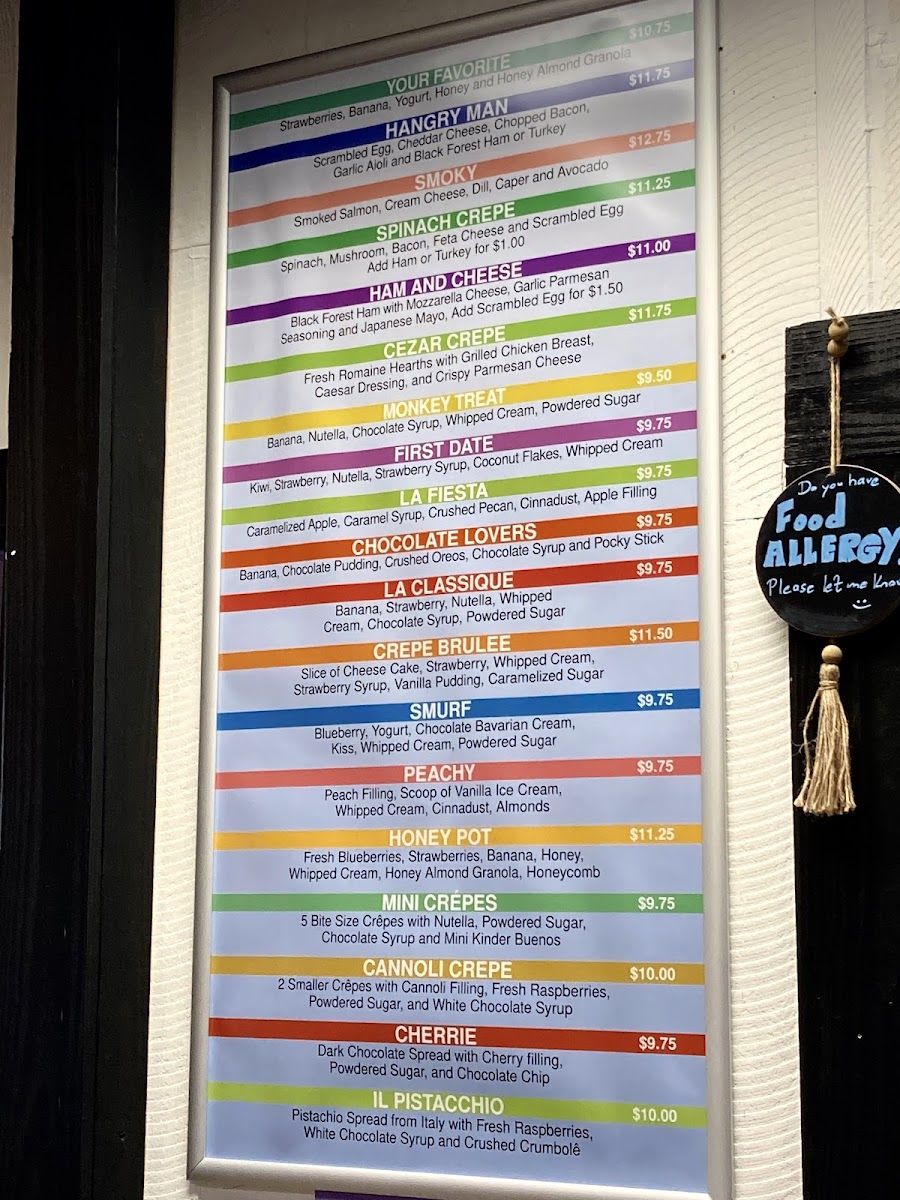 $10.75
YOUR FAVORITE
Strawberries, Banana, Yogurt, Honey and Honey Almond Granola
$11.75
HANGRY MAN
Scrambled Egg, Cheddar Cheese, Chopped Bacon,
Garlic Aioli and Black Forest Ham or Turkey
$12.75
SMOKY
Smoked Salmon, Cream Cheese, Dill, Caper and Avocado
$11.25
SPINACH CREPE
Spinach, Mushroom, Bacon, Feta Cheese and Scrambled Egg
Add Ham or Turkey for $1.00
$11.00
HAM AND CHEESE
Black Forest Ham with Mozzarella Cheese, Garlic Parmesan
Seasoning and Japanese Mayo, Add Scrambled Egg for $1.50
$11.75
CEZAR CREPE
Fresh Romaine Hearths with Grilled Chicken Breast,
Caesar Dressing, and Crispy Parmesan Cheese
$9.50
MONKEY TREAT
Banana, Nutella, Chocolate Syrup, Whipped Cream, Powdered Sugar
$9.75
FIRST DATE
Kiwi, Strawberry, Nutella, Strawberry Syrup, Coconut Flakes, Whipped Cream
$9.75
LA FIESTA
Caramelized Apple, Caramel Syrup, Crushed Pecan, Cinnadust, Apple Filling
$9.75
CHOCOLATE LOVERS
Banana, Chocolate Pudding, Crushed Oreos, Chocolate Syrup and Pocky Stick
$9.75
LA CLASSIQUE
Banana, Strawberry, Nutella, Whipped
Cream, Chocolate Syrup, Powdered Sugar
$11.50
CREPE BRULEE
Slice of Cheese Cake, Strawberry, Whipped Cream,
Strawberry Syrup, Vanilla Pudding, Caramelized Sugar
$9.75
SMURF
Blueberry, Yogurt, Chocolate Bavarian Cream,
Kiss, Whipped Cream, Powdered Sugar
$9.75
PEACHY
Peach Filling, Scoop of Vanilla Ice Cream,
Whipped Cream, Cinnadust, Almonds
$11.25
HONEY POT
Fresh Blueberries, Strawberries, Banana, Honey,
Whipped Cream, Honey Almond Granola, Honeycomb
$9.75
MINI CRÉPES
5 Bite Size Crêpes with Nutella, Powdered Sugar,
Chocolate Syrup and Mini Kinder Buenos
$10.00
CANNOLI CREPE
2 Smaller Crêpes with Cannoli Filling, Fresh Raspberries,
Powdered Sugar, and White Chocolate Syrup
$9.75
CHERRIE
Dark Chocolate Spread with Cherry filling,
Powdered Sugar, and Chocolate Chip
$10.00
IL PISTACCHIO
Pistachio Spread from Italy with Fresh Raspberries,
White Chocolate Syrup and Crushed Crumbolê
Do you have
Food
ALLERGY
Please let me know